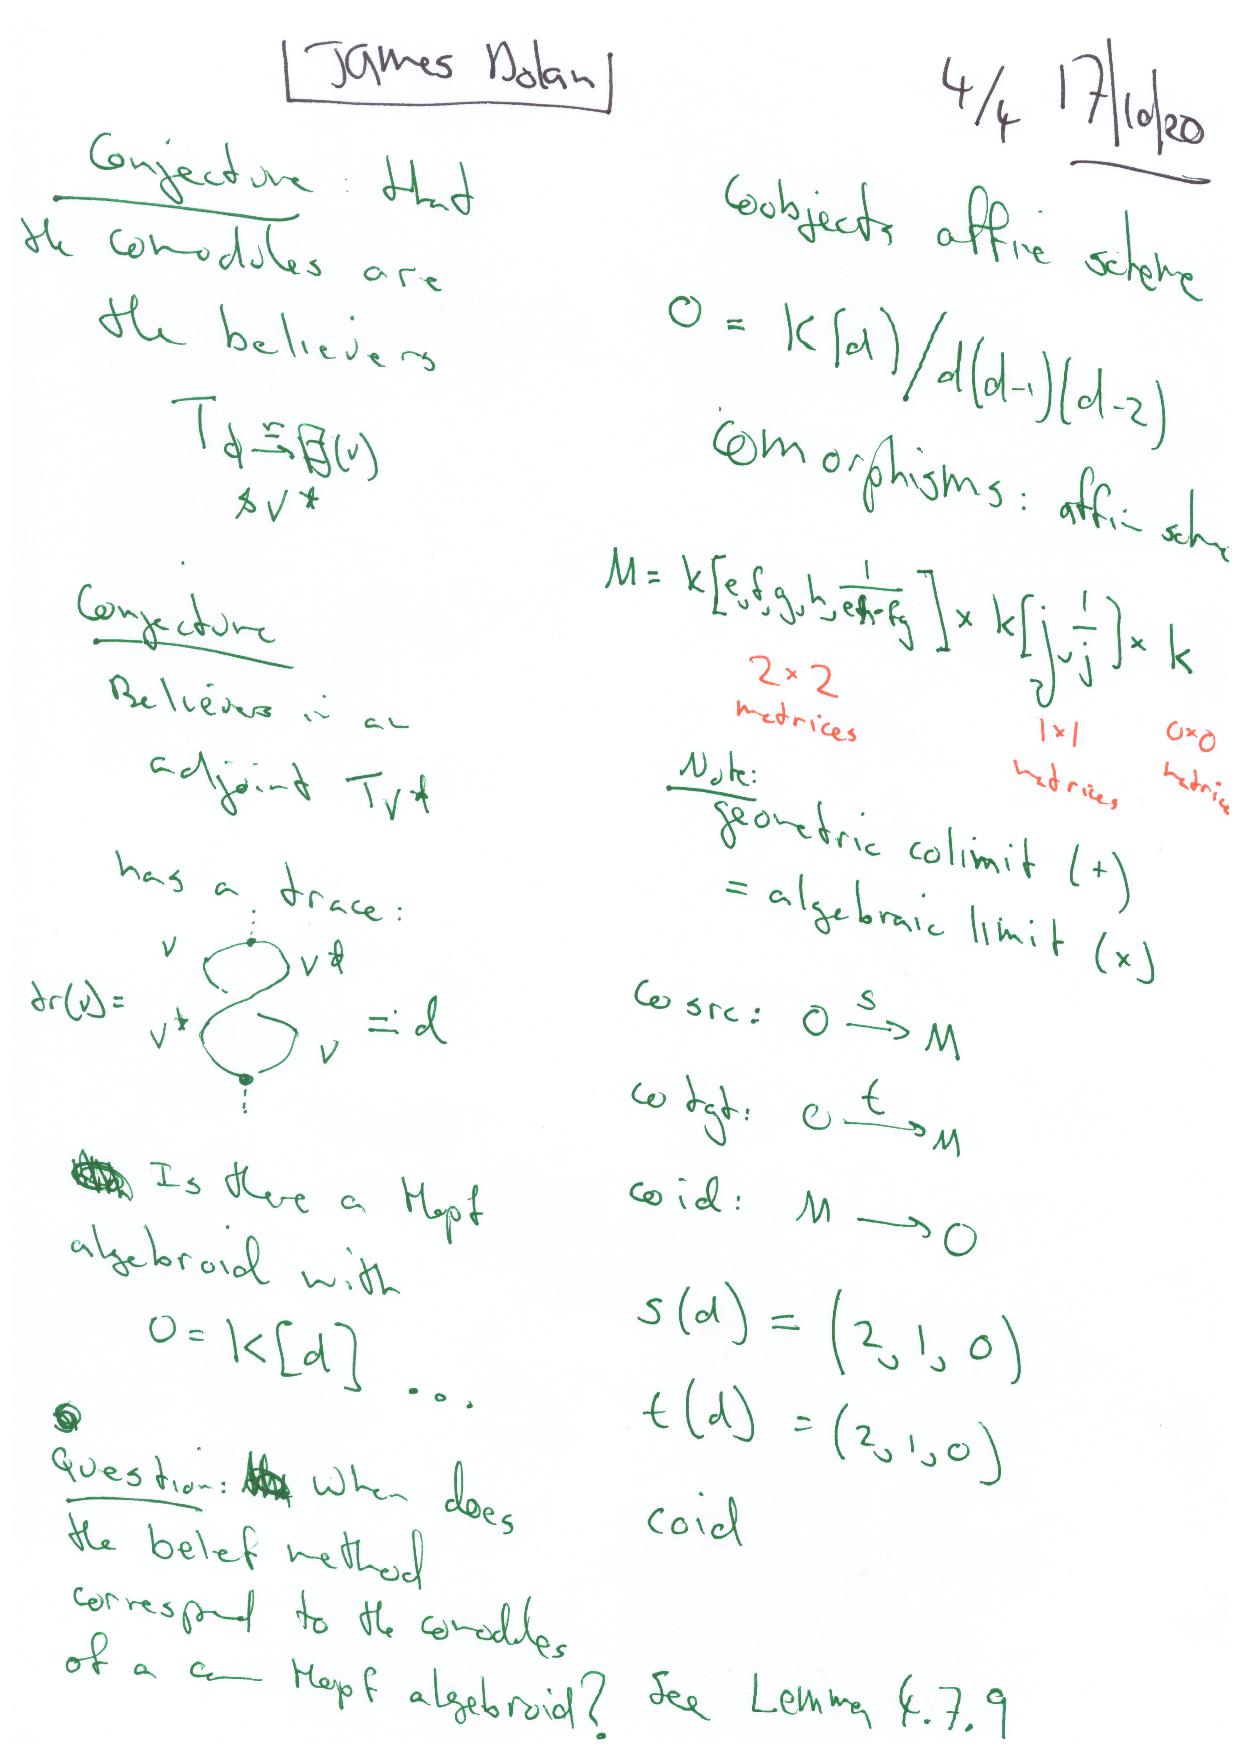 James Dolan
4/4 17/10/20
Conjecture: that
the comodules are
the believers
Conjecture
Believers in an
adjoint T V*
has a trace:
V V*
tr(V) = =: d
V* V
Is there a Hopf
algebroid with
O = k[d] ...
Question: When does
the belief method
correspond to the comodules
of a Hopf algebroid? See Lemma 4.7.9
Coobjects affine scheme
O = k[d]/d(d-1)(d-2)
Comorphisms: affine scheme
M = k[e,f,g,h,1/eh-fg] × k[j,1/j] × k
2×2 1×1 0×0
matrices matrices matrice
Note:
geometric colimit (+)
= algebraic limit (×)
co src: O s→ M
co tgt: O t→ M
co id: M → O
s(d) = (2, 1, 0)
t(d) = (2, 1, 0)
coid